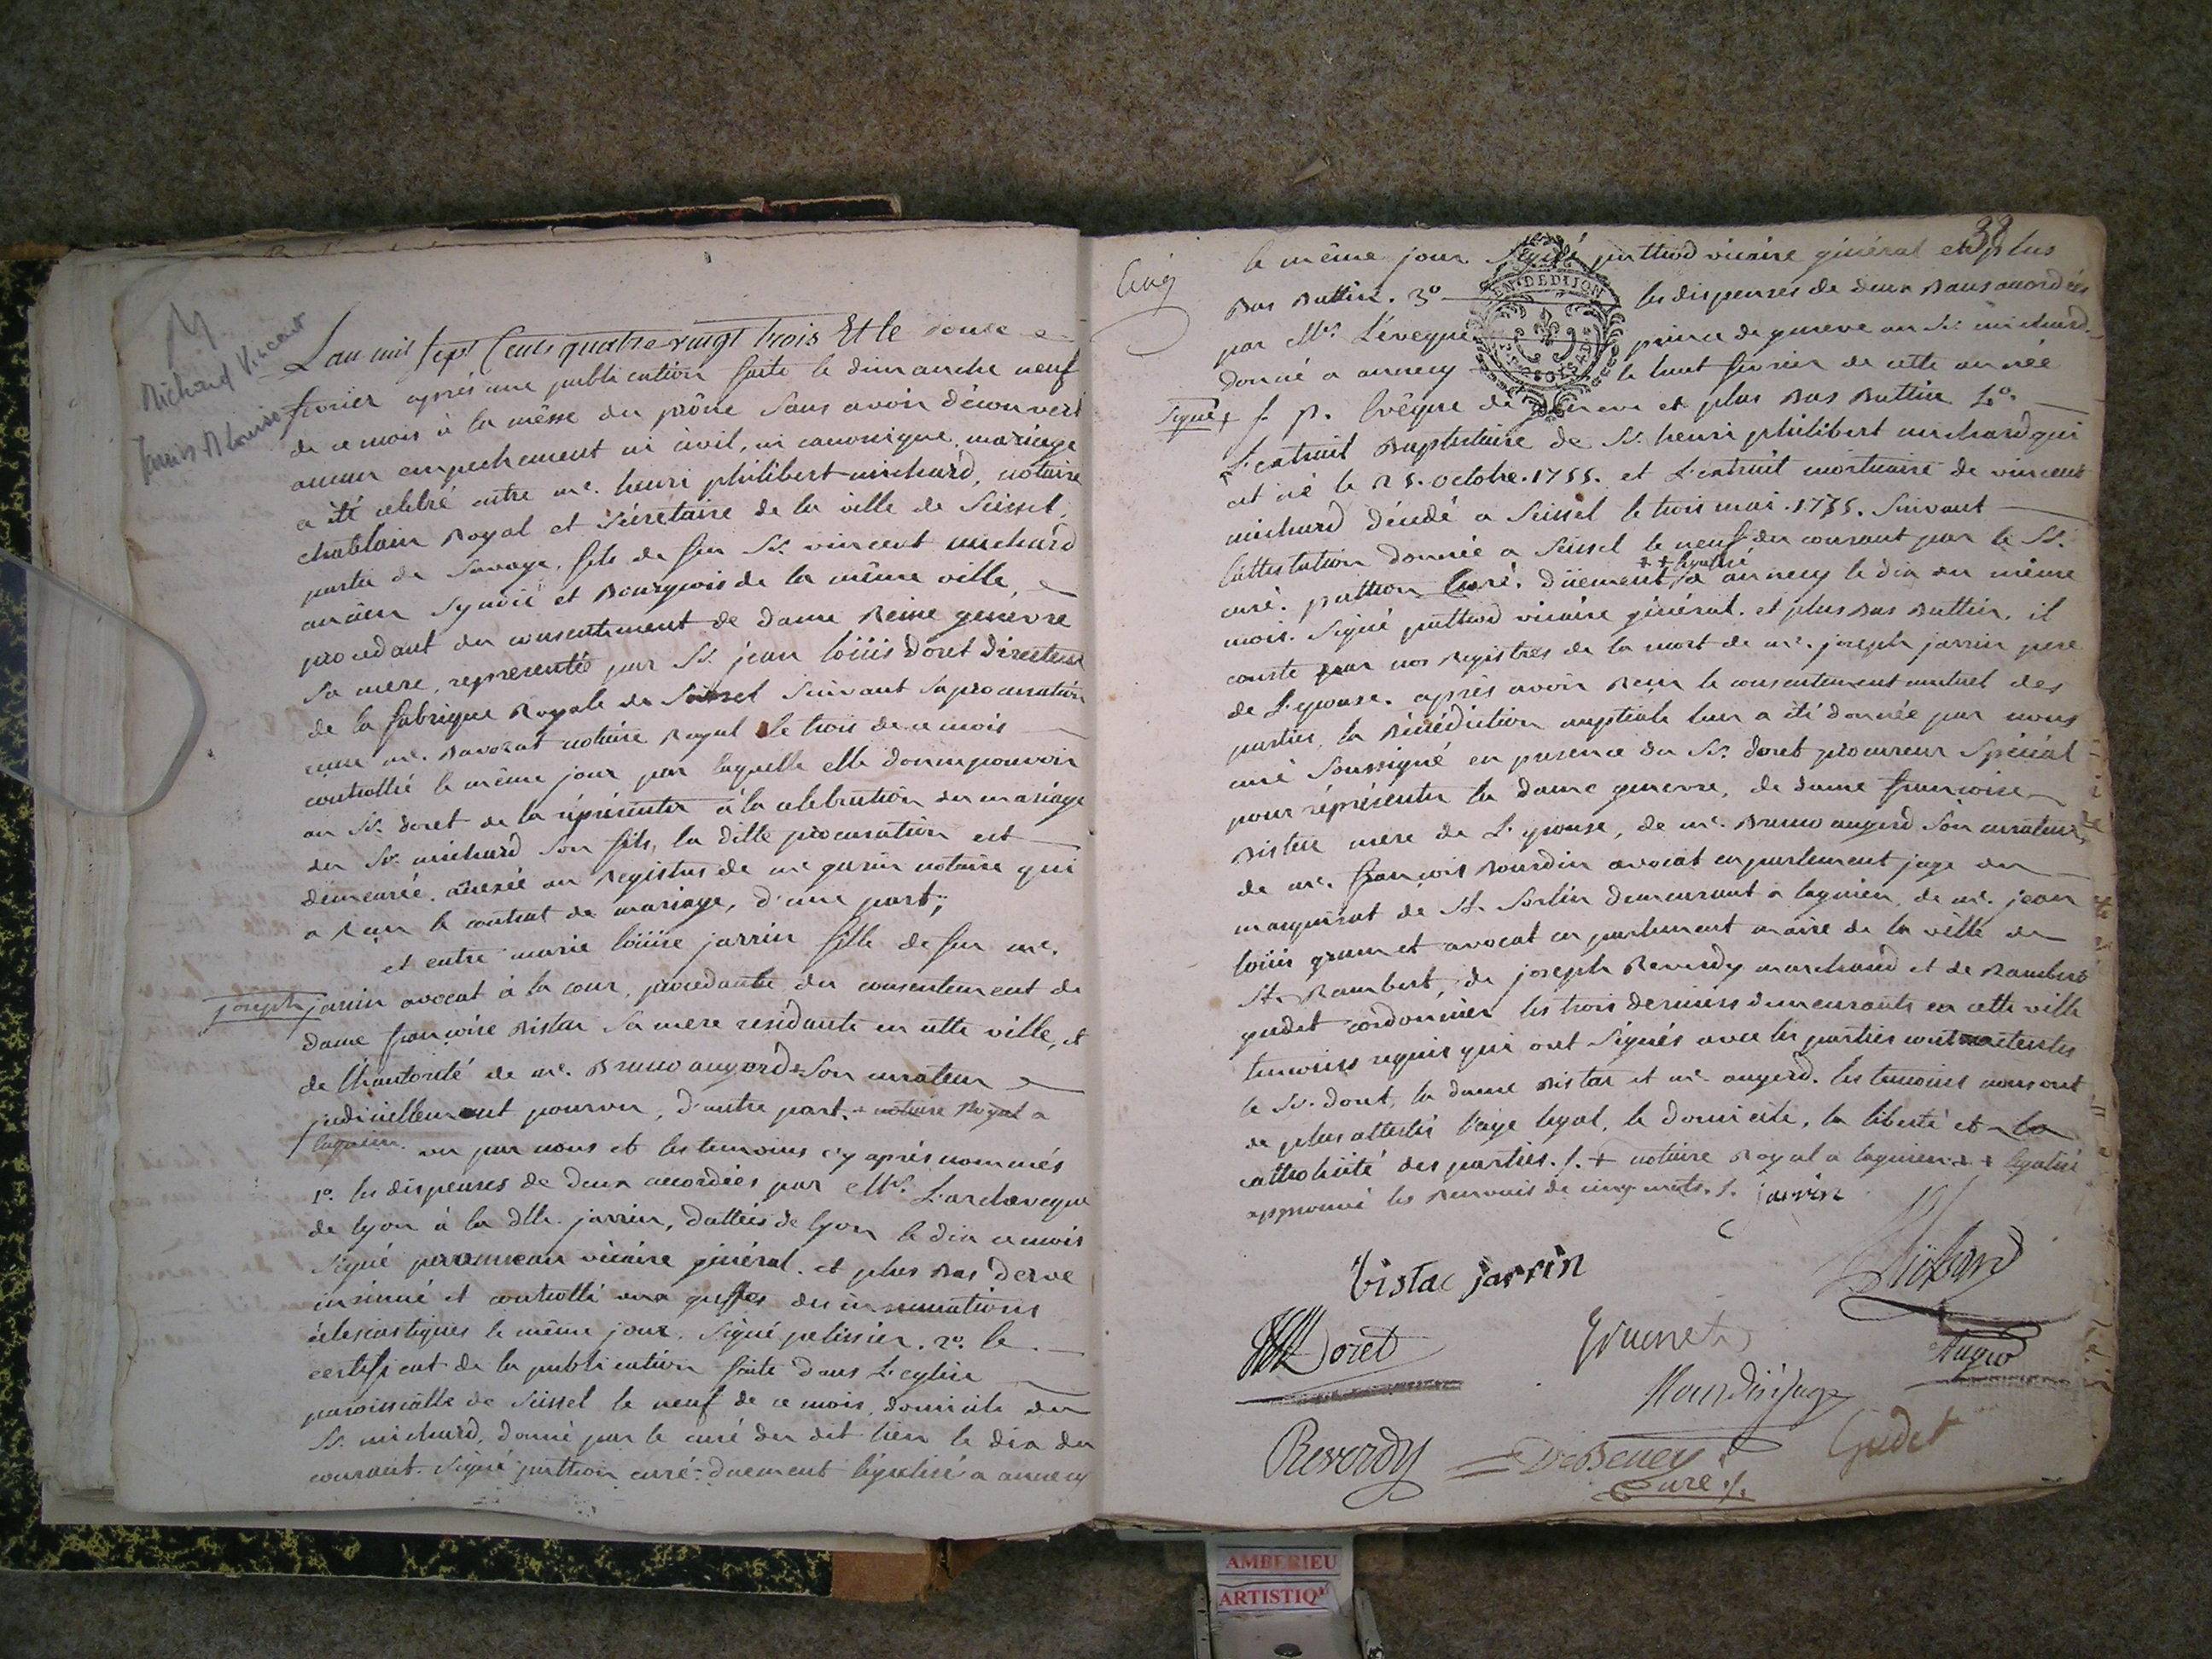 M.
Michard Vincent
Jarrin M Louise
L'an mil sept Cents quatre vingt trois Et le douze
fevrier après une publication faite le dimanche neuf
de ce mois à la mêsse du prône sans avoir découvert
aucun empechement ni civil, ni canonique, mariage
a été celebré entre mc. henri philibert michard, notaire
chatelain Royal et Sécretaire de la ville de Seissel,
partie de Savoye, fils de feu Sr. vincent michard
ancien Syndic et Bourgeois de la même ville,
procedant du consentiment de dame Reine genevre
Sa mere, representée par Sr. jean loüis doret directeur
de la fabrique Royale de Seissel Suivant sa procuration
reçue mc. notaire Royal le trois de ce mois
controllée le même jour par laquelle elle donne pouvoir
au Sr. doret de la réprésenter à la celebration du mariage
du Sr. michard Son fils, la ditte procuration est
demeurée anexée au Registre de mc guerin notaire qui
a Reçu le contrat de mariage, d'une part;
et entre marie loüise jarrin fille de feu mc.
joseph jarrin avocat à la cour, procedante du consentement de
dame françoise Bistac Sa mere residante en cette ville, et
de l'hautorité de mc. Bruno augerd + Son curateur
judiciellement pourvu, d'autre part. + notaire Royal a
lagnieu. vu par nous et les temoins cy après nommés
1o. les dispenses de deux accordées par Mgr. L'archeveque
de lyon à la dlle. jarrin, dattées de lyon le dix ce mois
Signé vicaire général. et plus Bas derve
insinué et controllé aux greffes des insinuations
éclesiastiques le même jour. Signé pelissier. 2o. le
certificat de la publication faite dans L'eglise
paroissialle de Seissel le neuf de ce mois, domicile du
Sr. michard, donné par le curé du dit lieu le dix du
courant. Signé curé: duement légalisé a annecy
38
Cinq
le même jour Signé puthod vicaire général et plus
Bas Buttin. 3o les dispenses de deux Bans accordées
par Mgr. L'éveque prince de geneve au Sr. michard
donné a annecy le huit fevrier de cette année
GEN. DE DIJON
Signé + J. P. evêque de geneve et plus Bas Buttin 4o.
L'extrait Baptistaire de Sr. henri philibert michard qui
est né le 25. octobre. 1755. et L'extrait mortuaire de vincent
michard décedé a Seissel le trois mai. 1775. Suivant
l'attestation donnée a Seissel le neuf du courant par le Sr.
++ legalisé
curé. curé. düement a annecy le dix du même
mois. Signé puthod vicaire général. et plus Bas Buttin. il
conste par nos Registres de la mort de mc. joseph jarrin pere
de L'epouse. après avoir Reçu le consentement mutuel des
parties, la Bénédiction nuptiale leur a été donnée par nous
curé Soussigné en presence du Sr. doret procureur Spécial
pour réprésenter la dame genevre, de dame françoise
Bistac mere de L'epouse, de mc. Bruno augerd Son curateur,
de mc. françois Bourdin avocat en parlement juge du
marquisat de St. Sorlin demeurant a lagnieu, de mc. jean
loüis grumet avocat en parlement maire de la ville de
St. Rambert, de joseph Reverdy marchand et de Rambert
gudet cordonnier les trois derniers demeurants en cette ville
temoins requis qui ont Signés avec les parties contractentes
le Sr. doret, la dame Bistac et mc augerd. les temoins nous ont
de plus attestés l'age legal, le domicile, la liberté et la
catholicité des parties. /. + notaire Royal a lagnieu ++ legalisé
approuvé les Renvois de cinq mots. /. jarrin
bistac jarrin
Michard
Doret
Grumet
Augerd
Bourdin juge
Reverdy
DeBeney
Curé ./.
Gudet
AMBERIEU
ARTISTIQ